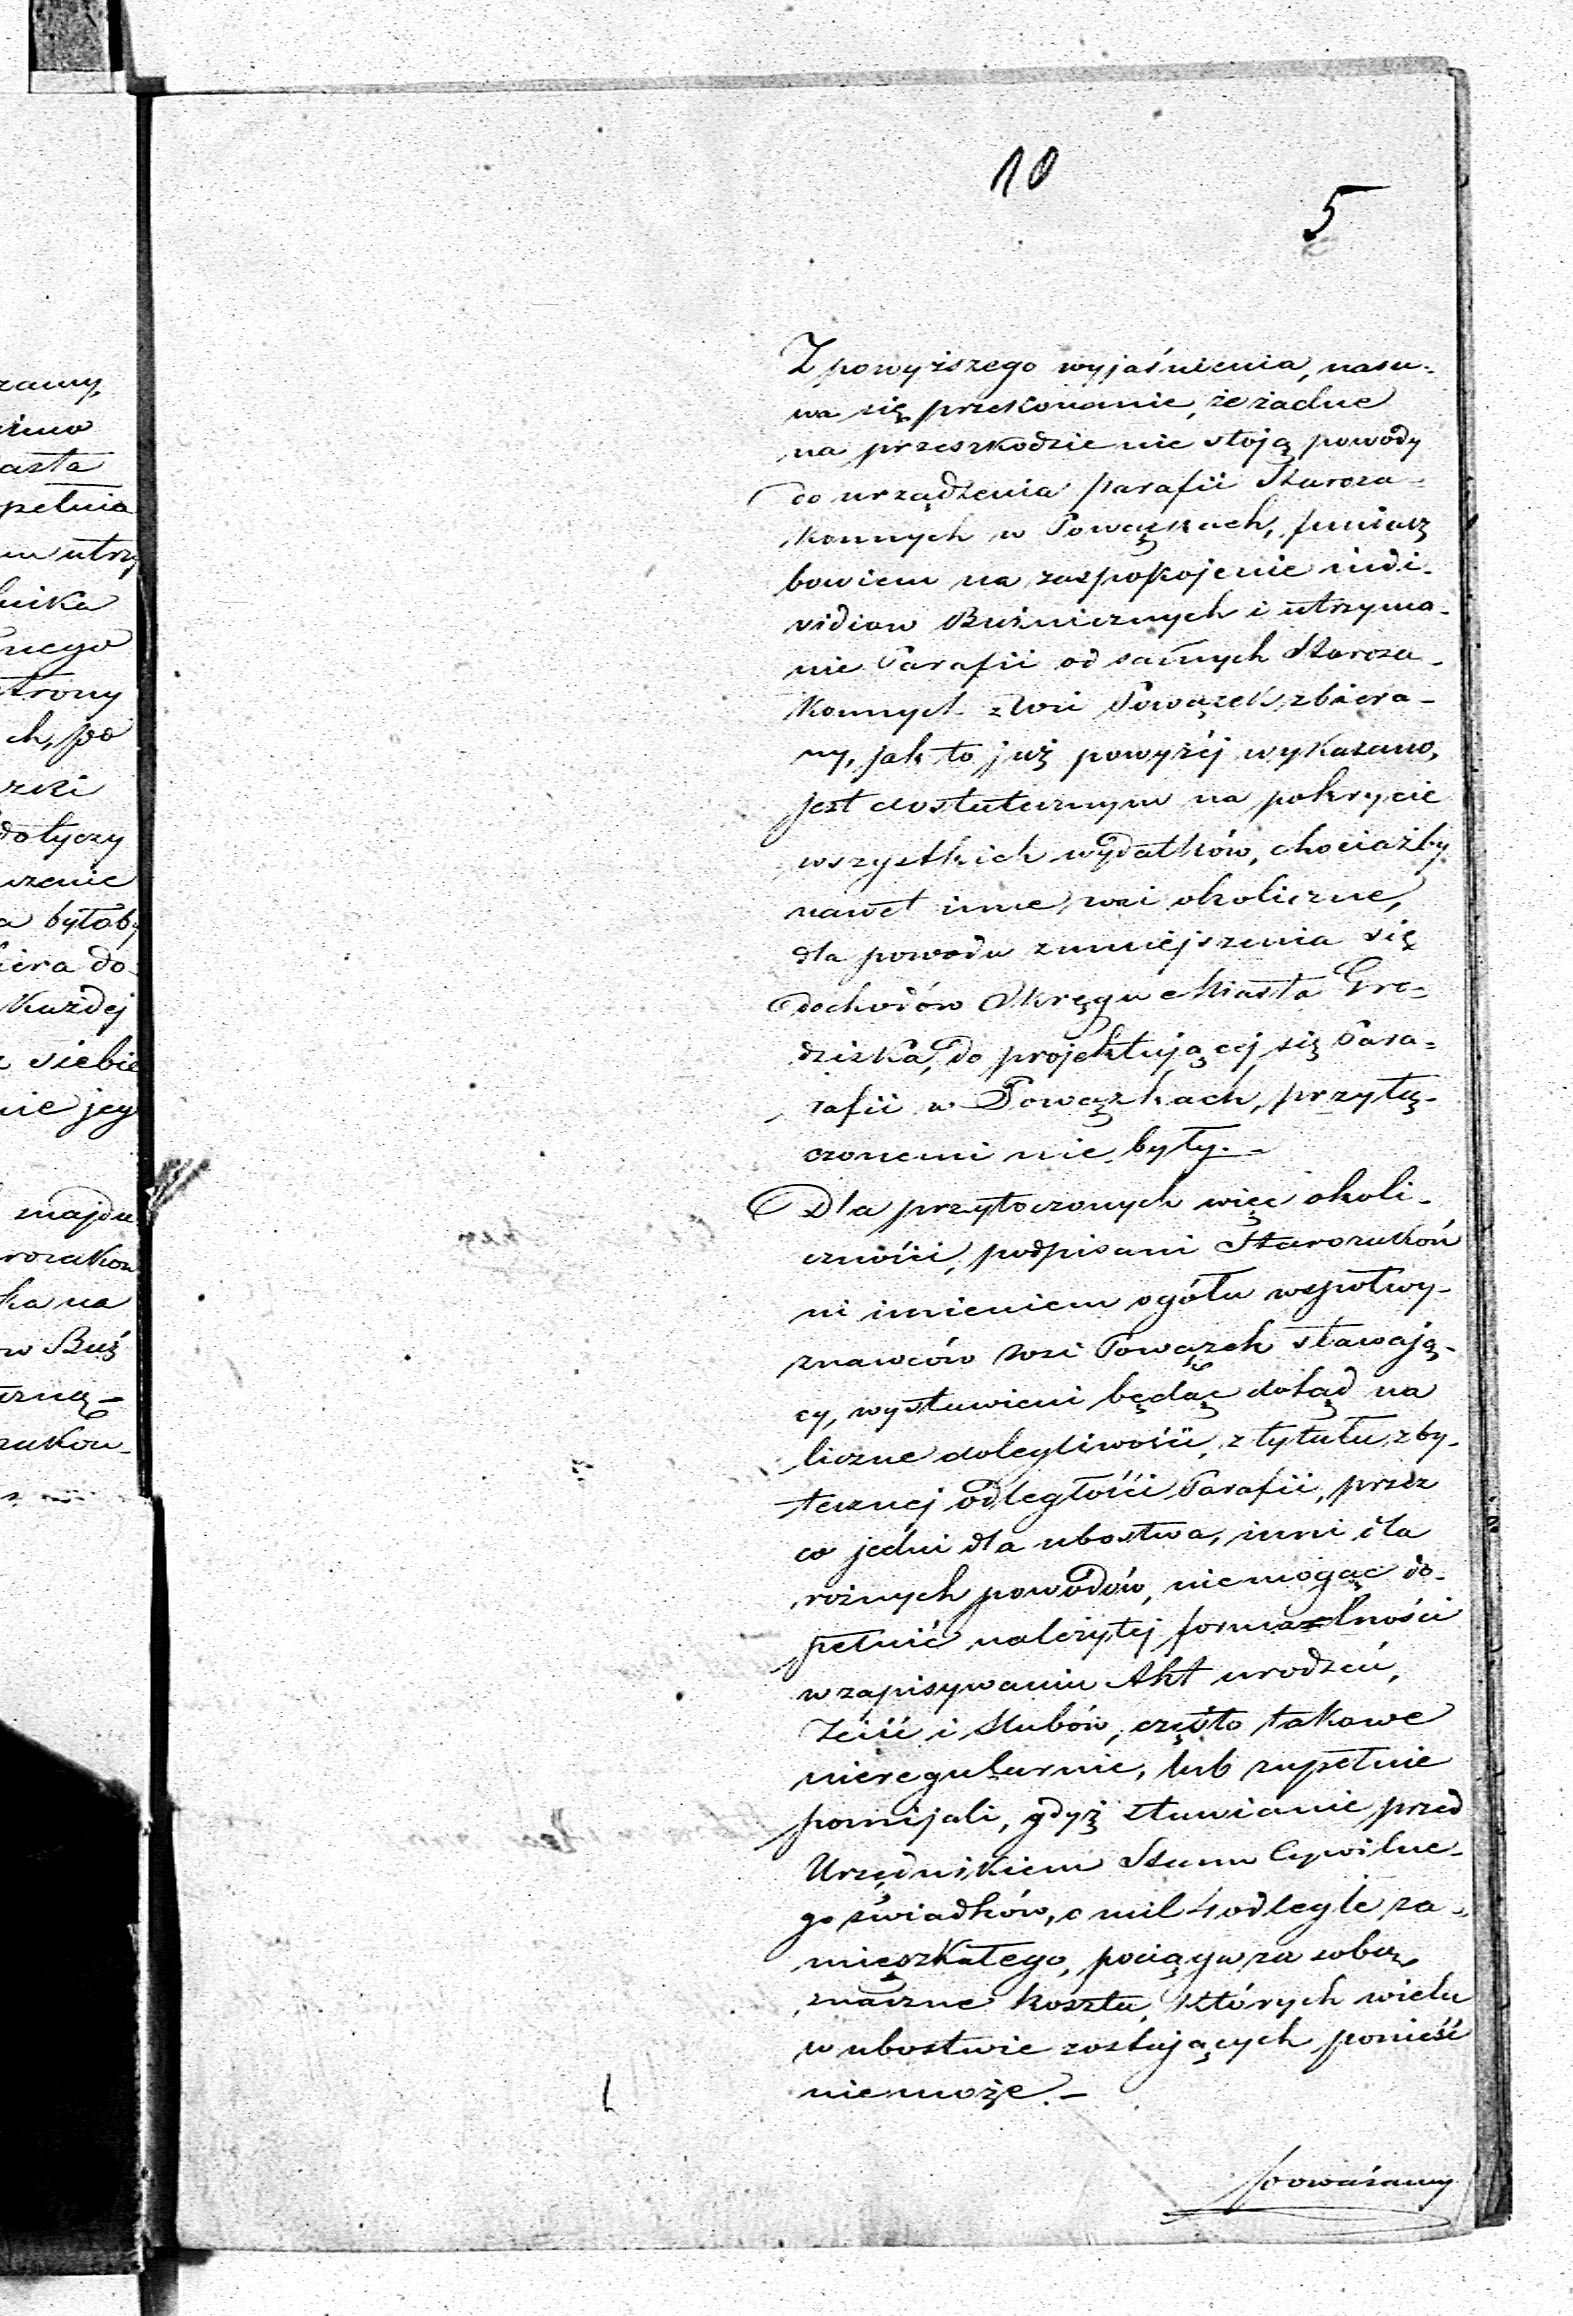 10
5
Z powyższego wyjaśnienia, nasu-
wa się przekonanie, że żadne
na przeszkodzie nie stoją powody
do urządzenia parafii Staroza-
konnych w Powązkach, funiusz
bowiem na zaspokojenie indi-
vidiow Buźnicznych i utrzyma-
nie Parafii od samych Staroza-
konnych z Wsi Powązek zbiera-
ny, jak to już powyżéj wykazano,
jest dostatecznym na pokrycie
wszystkich wydatków, chociażby
nawet inne wsi okoliczne,
dla powodu zmniejszenia się
dochodów Okręgu Miasta Gro-
dziska, do projektującej się Para-
rafii w Powązkach, przyłą-
czonemi nie były.-
Dla przytoczonych więc okoli-
czności, podpisani Starozakon
ni imieniem ogółu wspołwy-
znawców wsi Powązek stawają-
cy, wystawieni będąc dotąd na
liczne dolegliwości, z tytułu zby-
tecznej odległości Parafii, przez
co jedni dla ubostwa, inni dla
rożnych powodów, niemogąc do-
pełnić należytej formalności
w zapisywaniu Akt urodzeń,
Zejść i Slubów, często takowe
nieregularnie, lub zupełnie
pomijali, gdyż stawianie przed
Urzędnikiem Stanu Cywilne-
go świadków, o mil 4 odległe za-
mięszkałego, pociąga za sobą
znaczne koszta, których wielu
w ubostwie zostających ponieść
niemoże.-
ramy,
asta
pełnia
utrzy
nika
nego
strony
ch, po
zki
dotyczy
czenie
a byłob
iera do
Każdej
siebie
nie jeg
znajdu
rozakon
ka na
ow Buź
zną-
zakon-